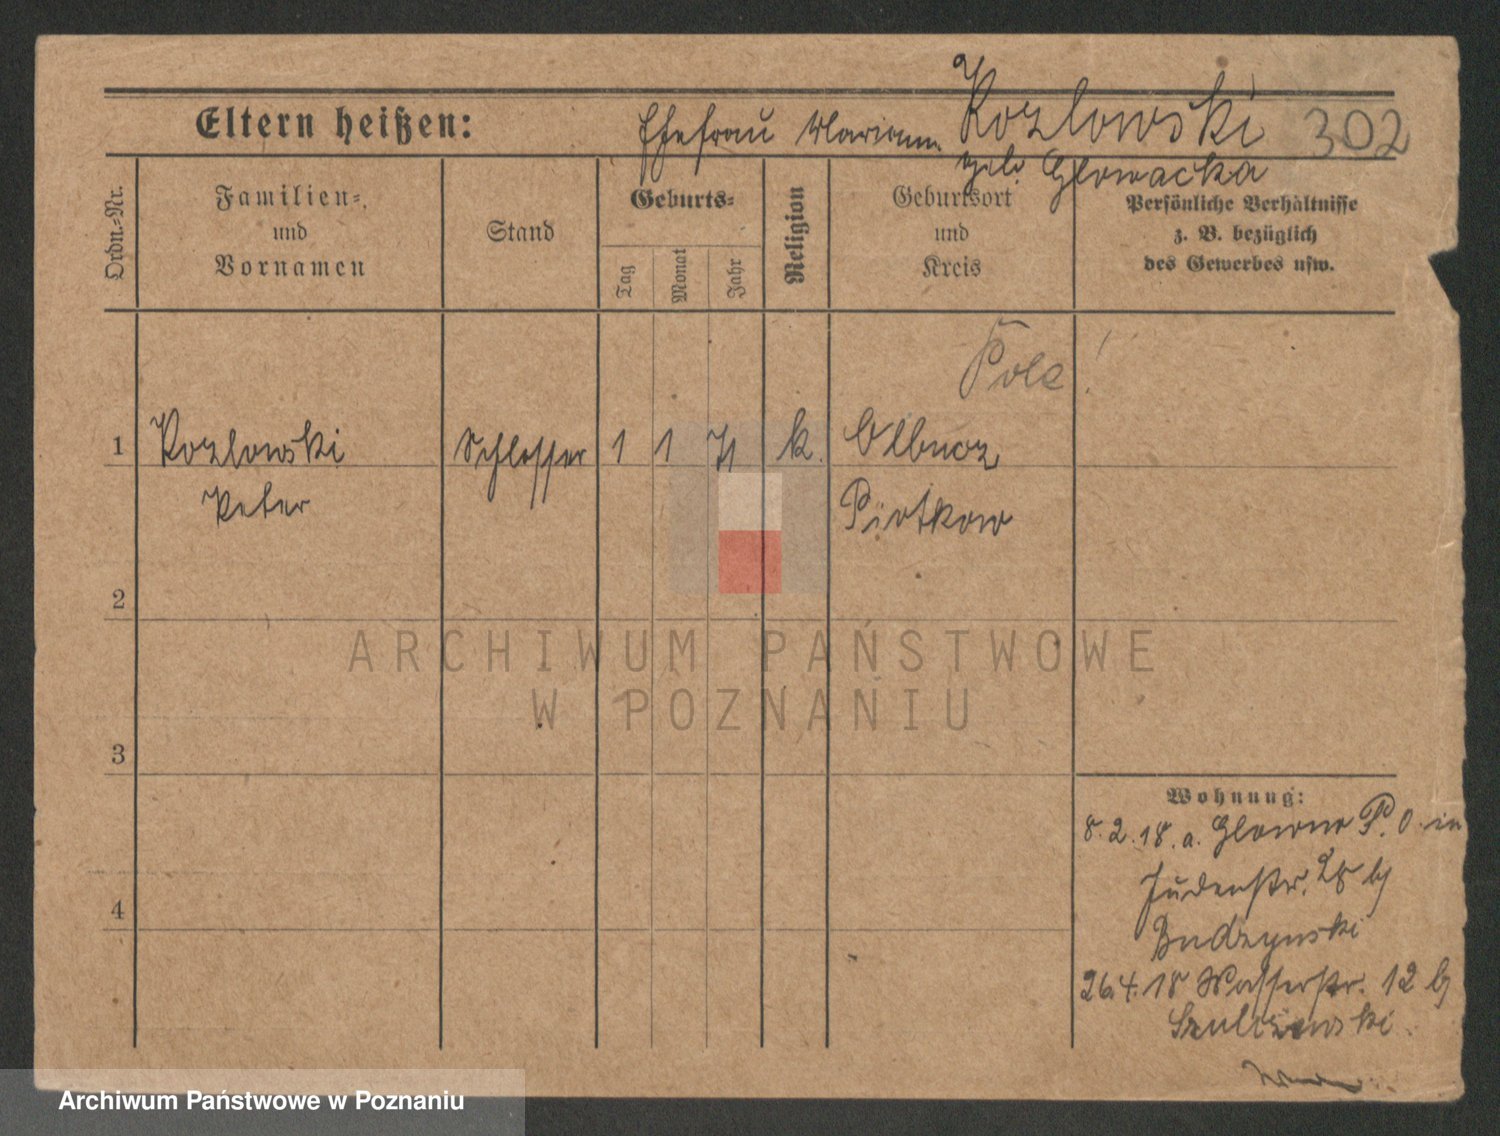 Eltern heißen:
Ehefrau Mariann. Kozlowski 302
geb. Glowacka
Ordn.-Nr.
Familien-
und
Vornamen
Stand
Geburts-
Tag
Monat
Jahr
Religion
Geburtsort
und
Kreis
Persönliche Verhältnisse
z. B. bezüglich
des Gewerbes usw.
Pole!
1 Kozlowski Schlosser 1 1 71 k.
Peter
Piotkow
2
3
4
ARCHIWUM PAŃSTWOWE
W POZNANIU
Wohnung:
8.2.18. a. Glowno P. O. in
Judenstr. 28 bj
Budzynski
26.4.18 Wasserstr. 12 bj
Szulczewski.
Archiwum Państwowe w Poznaniu